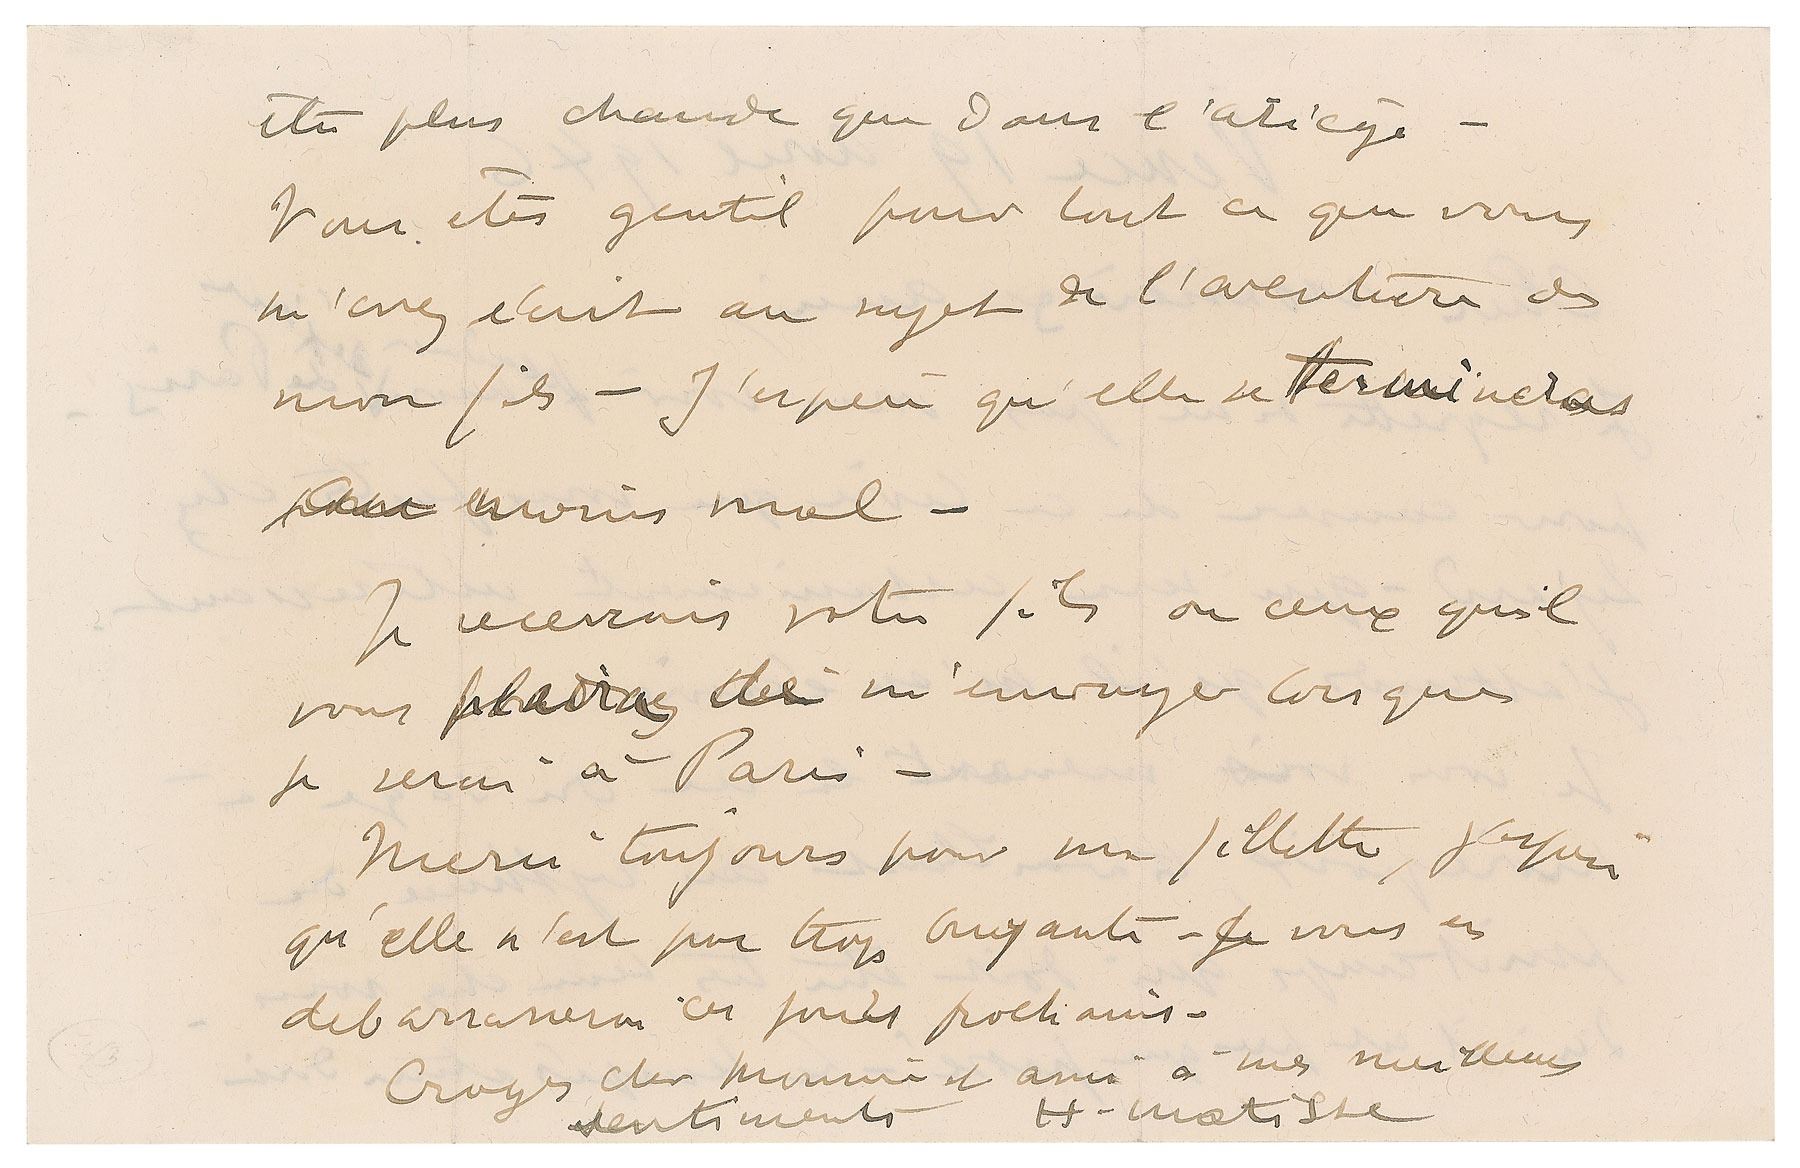 été plus chaude que dans l'ariège –
Vous êtes gentil pour tout ce que vous
m'avez écrit au sujet de l'aventure de
mon fils – J'espère qu'elle se terminera
moins mal –
Je recevrais votre fils ou ceux qu'il
vous plairag de m'envoyer lorsque
je serai à Paris –
Merci toujours pour ma fillette, j'espère
qu'elle n'est pas trop bruyante – Je vous en
debarrasserai ces jours prochains –
Croyez cher Monsieur et ami à mes meilleurs
sentiments H. matisse